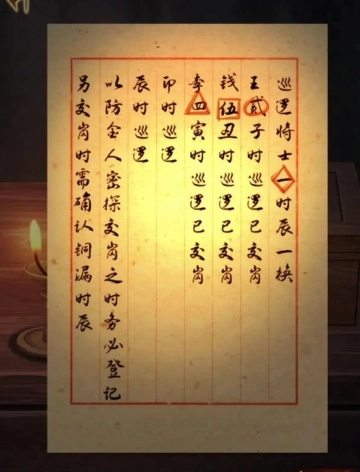 巡逻将士一时辰一换
王贰子时巡逻已交岗
钱伍丑时巡逻已交岗
李四寅时巡逻已交岗
卯时巡逻
辰时巡逻
以防金人密探交岗之时务必登记
另交岗时需确认铜漏时辰